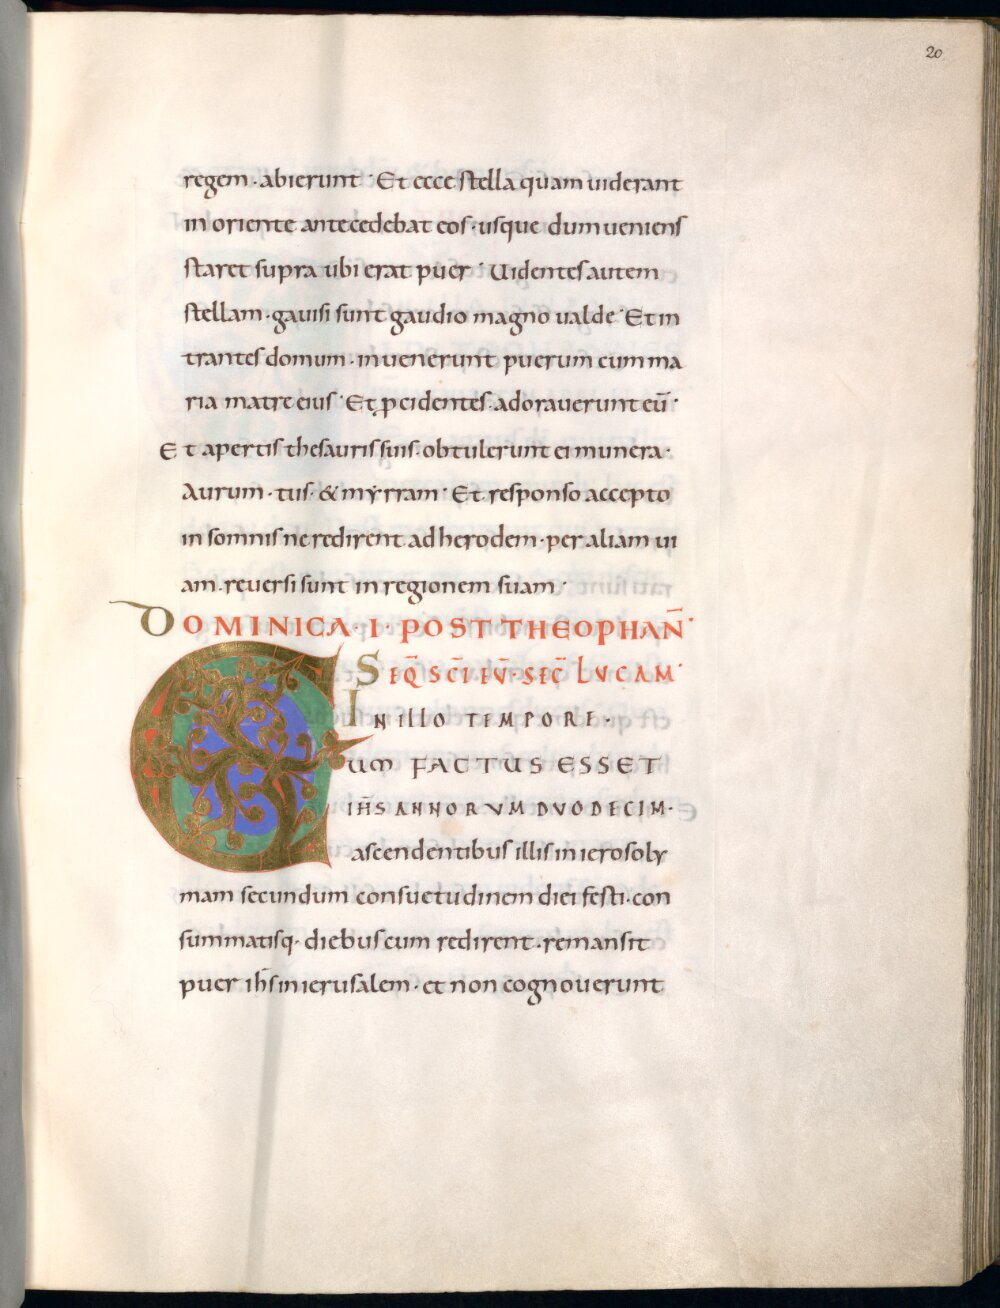 20
regem · abierunt · Et ecce stella quam uiderant
in oriente antecedebat eos · usque dum ueniens
staret supra ubi erat puer · Uidentes autem
stellam · gauisi sunt gaudio magno ualde · Et in
trantes domum · inuenerunt puerum cum ma
ria matre eius · Et ꝓcidentes · adorauerunt eū ·
Et apertis thesauris suis · obtulerunt ei munera ·
Aurum · tus · & myrram · Et responso accepto
in somnis ne redirent ad herodem · per aliam ui
am · reuersi sunt in regionem suam ·
DOMINICA · I · POST THEOPHAN̄ ·
SEQ̄ SC̄I EV̄ · SEC̄ LVCAM ·
IN ILLO TEMPORE ·
CUM FACTUS ESSET
IH̄S ANNORVM DVODECIM ·
ascendentibus illis in ierosoly
mam secundum consuetudinem diei festi · con
summatisq · diebus cum redirent · remansit
puer ih̄s in ierusalem · et non cognouerunt